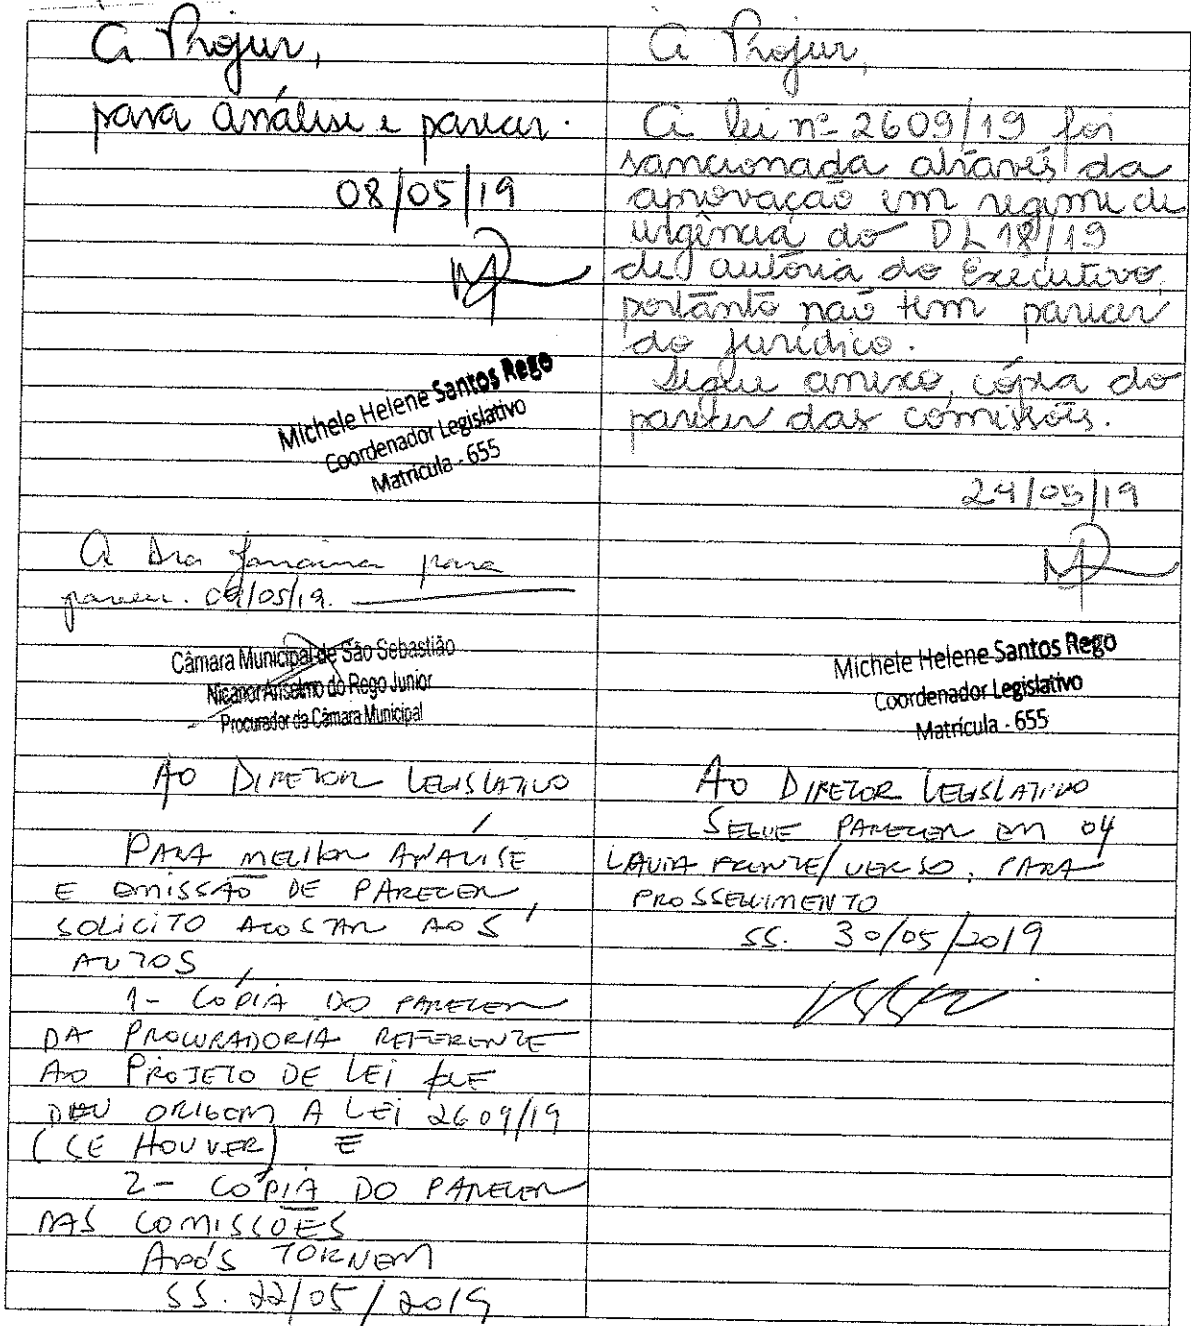 À Projur,
para análise e parecer.
08/05/19
Michele Helene Santos Rego
Coordenador Legislativo
Matrícula - 655
A Dra Janaina para
parecer. 09/05/19.
Câmara Municipal de São Sebastião
Nicanor Anselmo do Rego Junior
Procurador da Câmara Municipal
AO DIRETOR LEGISLATIVO
PARA MELHOR ANÁLISE
E EMISSÃO DE PARECER,
SOLICITO ACOSTAR AOS
AUTOS,
1- CÓPIA DO PARECER
DA PROCURADORIA REFERENTE
AO PROJETO DE LEI QUE
DEU ORIGEM A LEI 2609/19
(SE HOUVER) E
2- CÓPIA DO PARECER
DAS COMISSÕES
APÓS TORNEM
SS. 22/05/2019
À Projur,
A lei nº 2609/19 foi
sancionada através da
aprovação em regime de
urgência do DL 18/19
de autoria do Executivo,
portanto não tem parecer
do jurídico.
Segue anexo, cópia do
parecer das comissões.
24/05/19
Michele Helene Santos Rego
Coordenador Legislativo
Matrícula - 655
AO DIRETOR LEGISLATIVO
SEGUE PARECER EM 04
LAUDA FRENTE/VERSO, PARA
PROSSEGUIMENTO
SS. 30/05/2019